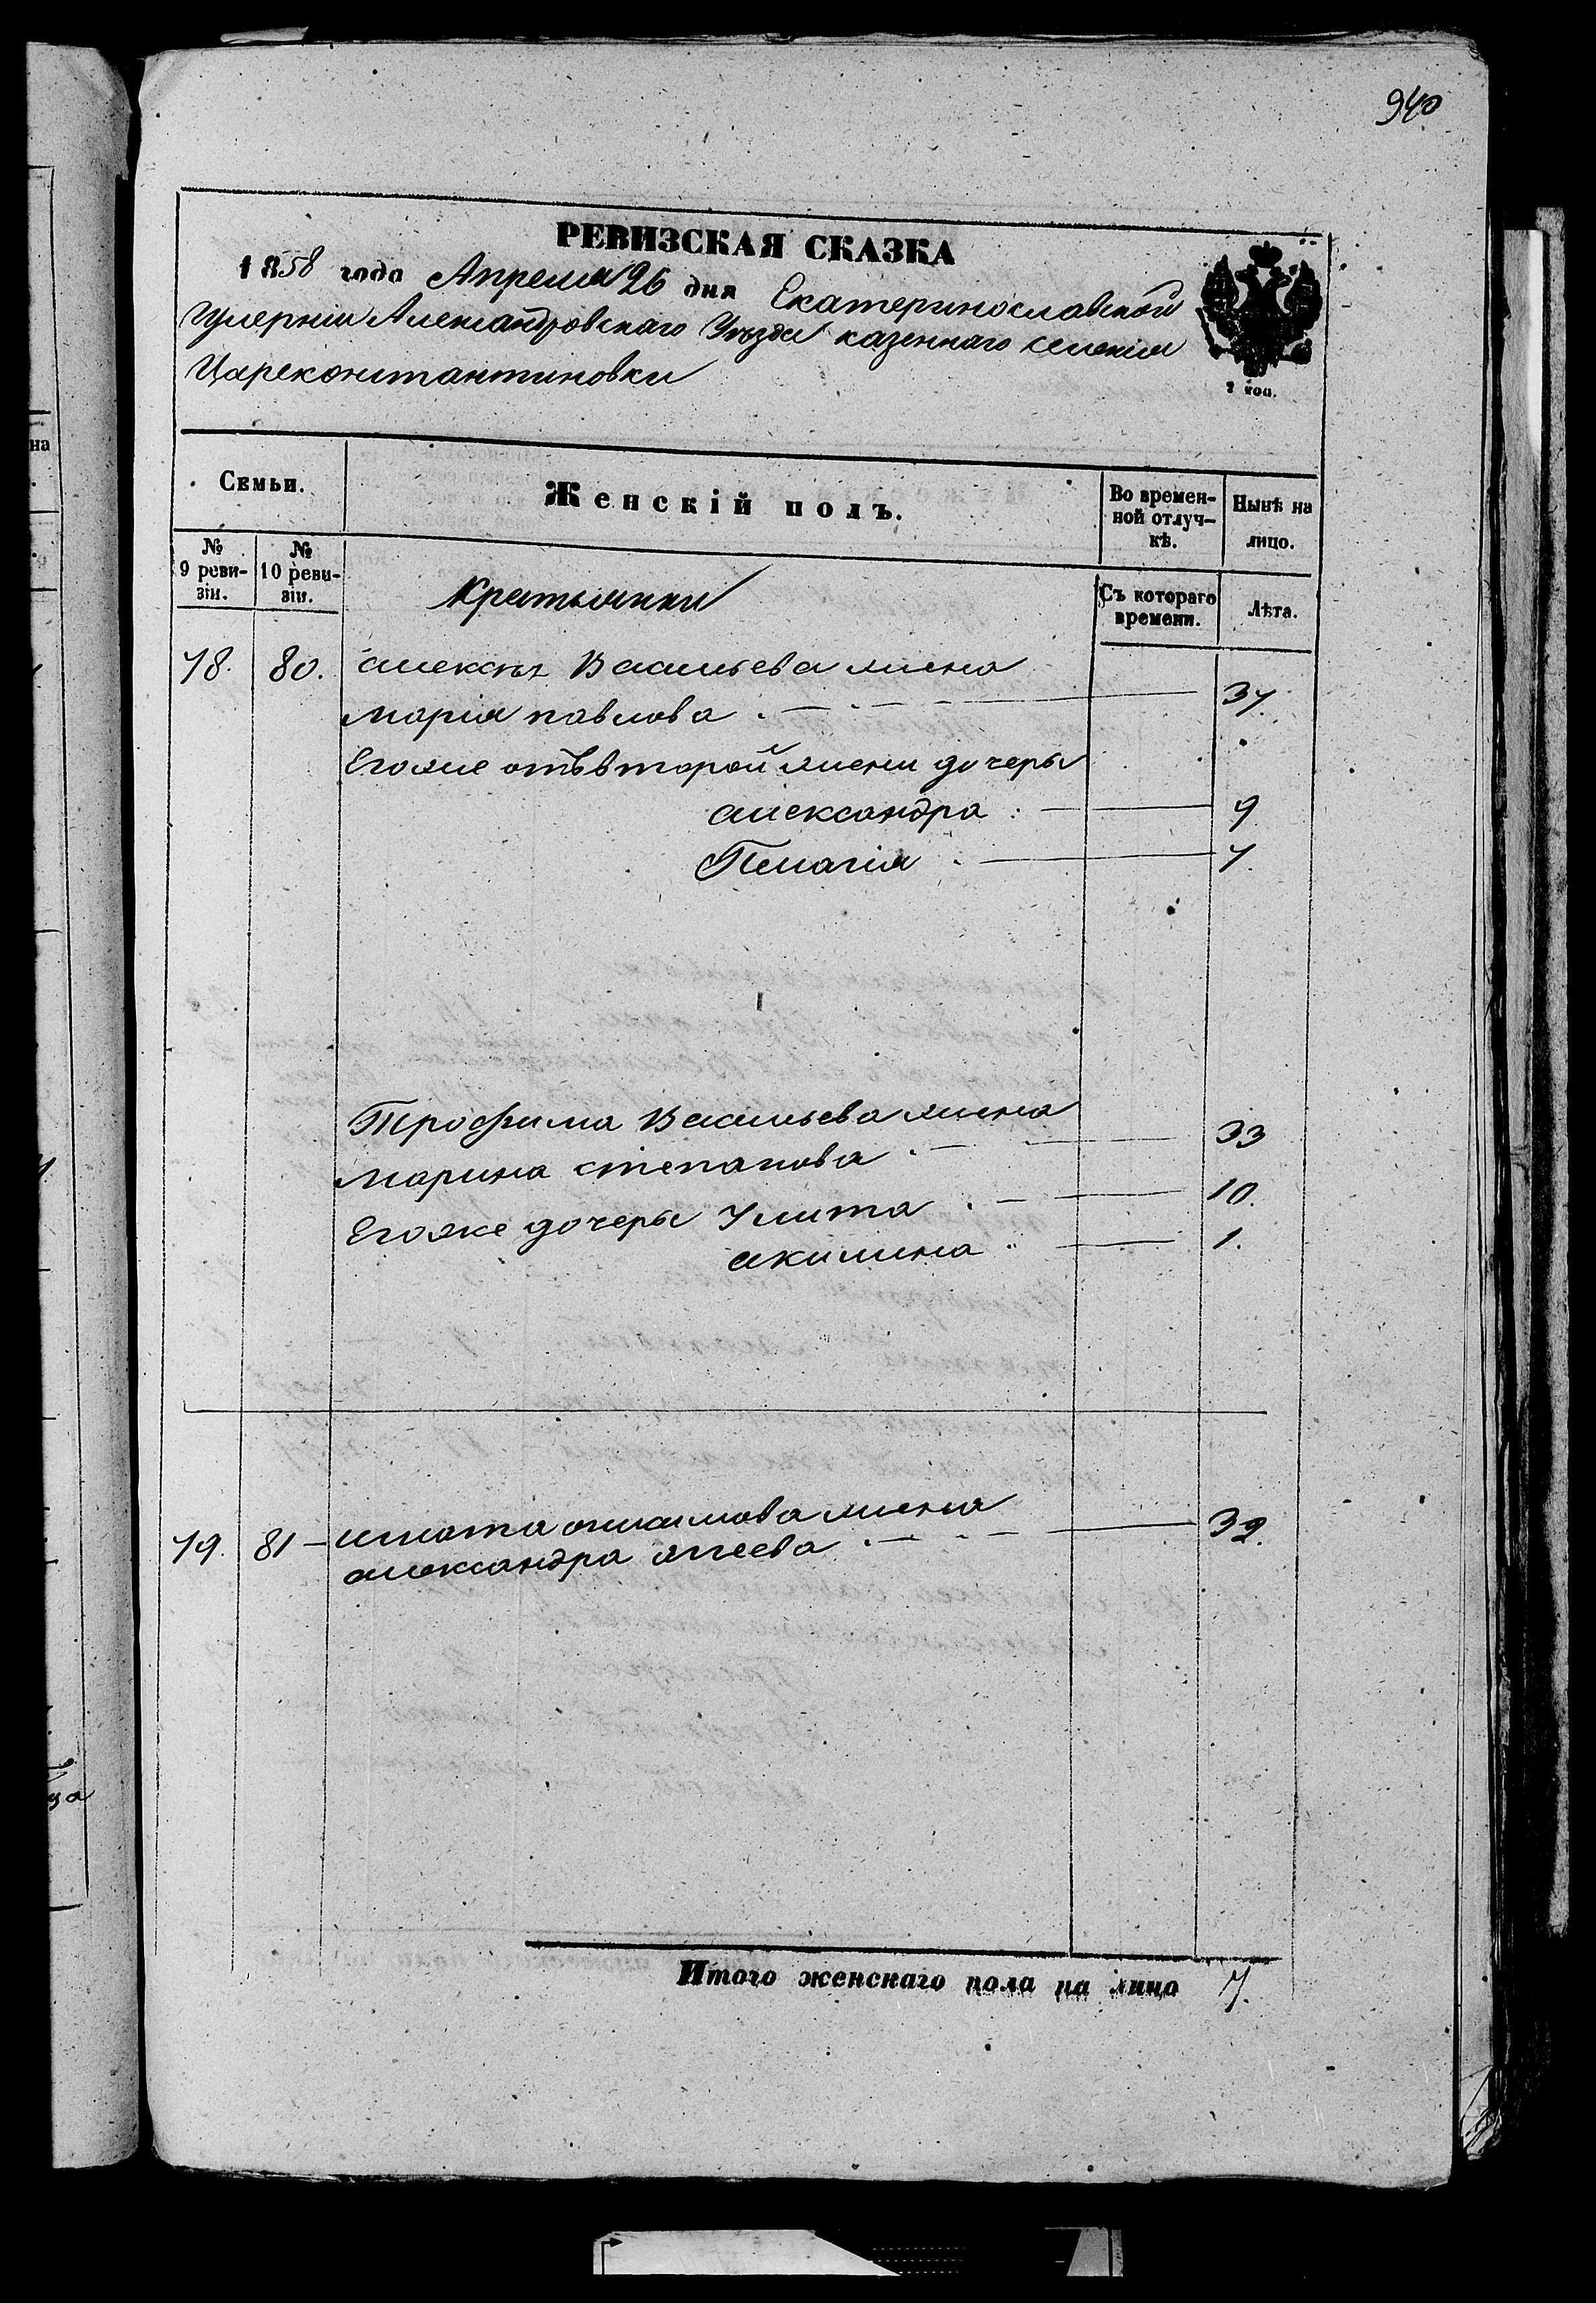 940
РЕВИЗСКАЯ СКАЗКА
1858 года Апреля 26 дня Екатеринославской
Губерніи Александровскаго Уѣзда казеннаго селенія
Цареконстантиновки
2 коп.
Семьи.
Женскій полъ.
Во времен-
ной отлуч-
кѣ.
Нынѣ на
лицо.
№
9 реви-
зіи.
№
10 реви-
зіи.
Крестьянки
Съ котораго
времени.
Лѣта.
78. 80. алексѣя Васильева жена
марія павлова . — 37.
Егоже отъ второй жени дочеры
александра . — 9
Пелагія . — 7.
Трофима Васильева жена
марина степанова . — 33
Егоже дочеры Улита . — 10.
акилина . — 1.
79. 81 — жена
александра . — 32.
Итого женскаго пола на лицо 7.
на
ца